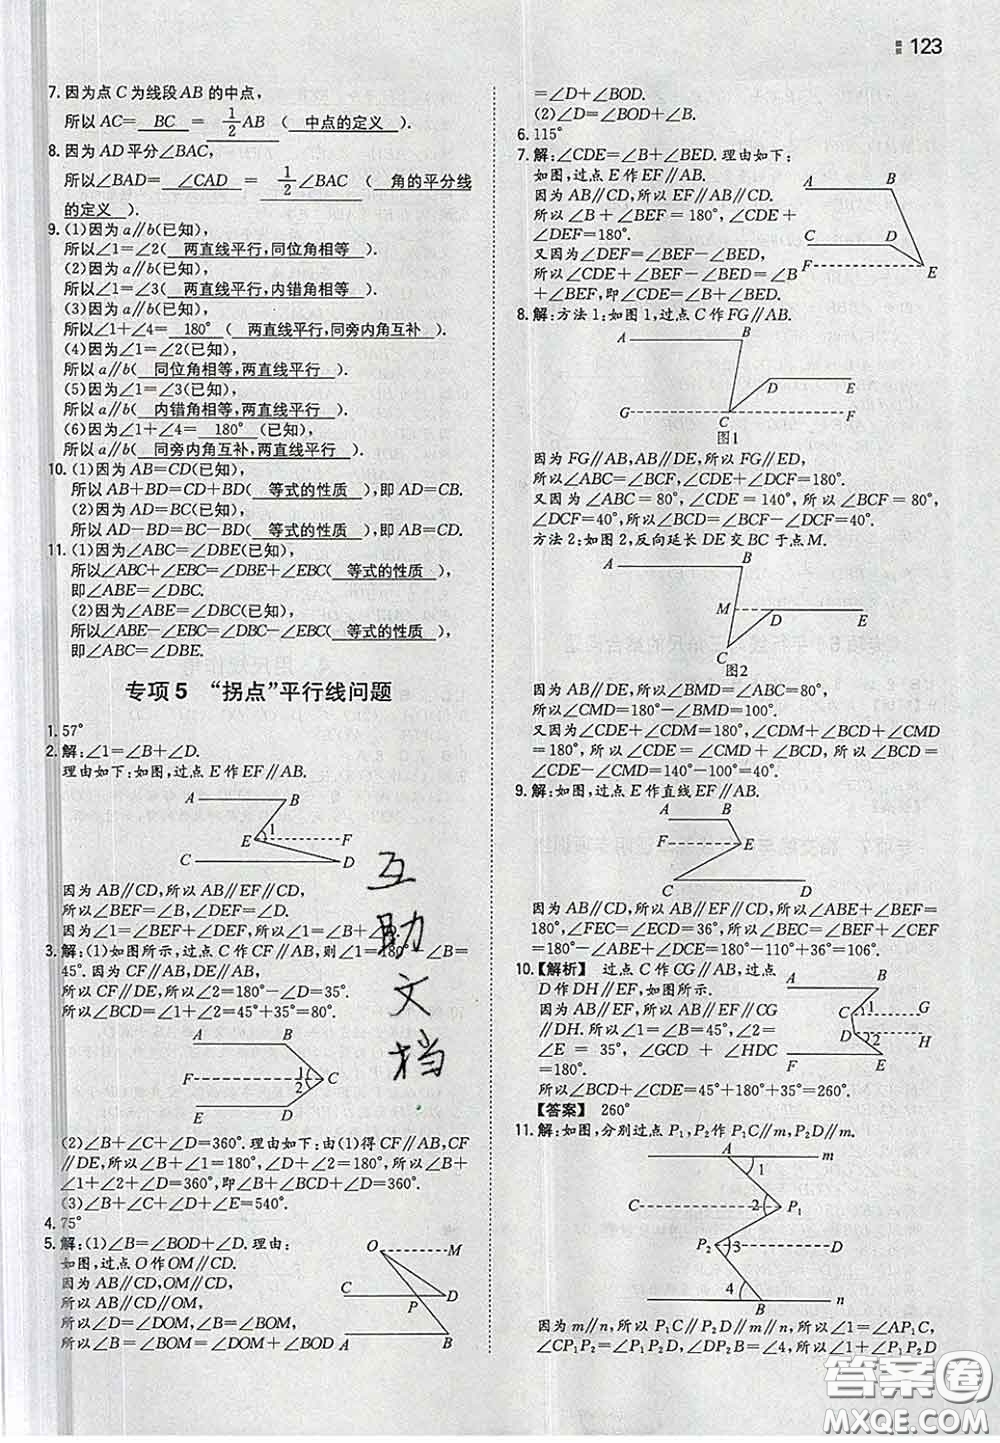 123
7.因为点C为线段AB的中点,
所以AC= BC = 1/2 AB ( 中点的定义 ).
8.因为AD平分∠BAC,
所以∠BAD= ∠CAD = 1/2 ∠BAC ( 角的平分线
的定义 ).
9.(1)因为a∥b(已知),
所以∠1=∠2( 两直线平行,同位角相等 ).
(2)因为a∥b(已知),
所以∠1=∠3( 两直线平行,内错角相等 ).
(3)因为a∥b(已知),
所以∠1+∠4= 180° ( 两直线平行,同旁内角互补 ).
(4)因为∠1=∠2(已知),
所以a∥b( 同位角相等,两直线平行 ).
(5)因为∠1=∠3(已知),
所以a∥b( 内错角相等,两直线平行 ).
(6)因为∠1+∠4= 180° (已知),
所以a∥b( 同旁内角互补,两直线平行 ).
10.(1)因为AB=CD(已知),
所以AB+BD=CD+BD( 等式的性质 ),即AD=CB.
(2)因为AD=BC(已知),
所以AD-BD=BC-BD( 等式的性质 ),即AB=CD.
11.(1)因为∠ABC=∠DBE(已知),
所以∠ABC+∠EBC=∠DBE+∠EBC( 等式的性质 ),
即∠ABE=∠DBC.
(2)因为∠ABE=∠DBC(已知),
所以∠ABE-∠EBC=∠DBC-∠EBC( 等式的性质 ),
即∠ABC=∠DBE.
专项5 “拐点”平行线问题
1.57°
2.解:∠1=∠B+∠D.
理由如下:如图,过点E作EF∥AB.
A B
E 1 F
C D
因为AB∥CD,所以AB∥EF∥CD,
所以∠BEF=∠B,∠DEF=∠D.
因为∠1=∠BEF+∠DEF,所以∠1=∠B+∠D.
3.解:(1)如图所示,过点C作CF∥AB,则∠1=180°-∠B=
45°.因为CF∥AB,DE∥AB,
所以CF∥DE,所以∠2=180°-∠D=35°.
所以∠BCD=∠1+∠2=45°+35°=80°.
A B
F 1 2 C
E D
(2)∠B+∠C+∠D=360°.理由如下:由(1)得CF∥AB,CF
∥DE,所以∠B+∠1=180°,∠D+∠2=180°,所以∠B+
∠1+∠2+∠D=360°,即∠B+∠BCD+∠D=360°.
(3)∠B+∠C+∠D+∠E=540°.
4.75°
5.解:(1)∠B=∠BOD+∠D.理由:
如图,过点O作OM∥CD.
因为AB∥CD,OM∥CD,
所以AB∥CD∥OM,
所以∠D=∠DOM,∠B=∠BOM,
所以∠B=∠BOM=∠DOM+∠BOD
O M
C P D
A B
=∠D+∠BOD.
(2)∠D=∠BOD+∠B.
6.115°
7.解:∠CDE=∠B+∠BED.理由如下:
如图,过点E作EF∥AB.
因为AB∥CD,所以EF∥AB∥CD.
所以∠B+∠BEF=180°,∠CDE+
∠DEF=180°.
又因为∠DEF=∠BEF-∠BED,
所以∠CDE+∠BEF-∠BED=∠B
+∠BEF,即∠CDE=∠B+∠BED.
A B
C D
F E
8.解:方法1:如图1,过点C作FG∥AB.
A B
D E
G C F
图1
因为FG∥AB,AB∥DE,所以FG∥ED,
所以∠ABC=∠BCF,∠CDE+∠DCF=180°.
又因为∠ABC=80°,∠CDE=140°,所以∠BCF=80°,
∠DCF=40°,所以∠BCD=∠BCF-∠DCF=40°.
方法2:如图2,反向延长DE交BC于点M.
A B
M E
C D
图2
因为AB∥DE,所以∠BMD=∠ABC=80°,
所以∠CMD=180°-∠BMD=100°.
又因为∠CDE+∠CDM=180°,∠CDM+∠CMD+∠BCD
=180°,所以∠CDE=∠CMD+∠BCD,所以∠BCD=
∠CDE-∠CMD=140°-100°=40°.
9.解:如图,过点E作直线EF∥AB.
A B
F E
C D
因为AB∥CD,所以AB∥EF∥CD,所以∠ABE+∠BEF=
180°,∠FEC=∠ECD=36°,所以∠BEC=∠BEF+∠FEC
=180°-∠ABE+∠DCE=180°-110°+36°=106°.
10.【解析】 过点C作CG∥AB,过点
D作DH∥EF,如图所示.
因为AB∥EF,所以AB∥EF∥CG
∥DH.所以∠1=∠B=45°,∠2=
∠E=35°,∠GCD+∠HDC
=180°.
所以∠BCD+∠CDE=45°+180°+35°=260°.
【答案】 260°
A B
C 1 G
D 2 H
F E
11.解:如图,分别过点P₁,P₂作P₁C∥m,P₂D∥m.
A m
1
C 2 P₁
P₂ 3 D
4
B n
因为m∥n,所以P₁C∥P₂D∥m∥n,所以∠1=∠AP₁C,
∠CP₁P₂=∠P₁P₂D,∠DP₂B=∠4,所以∠1+∠P₁P₂D
互助文档
答案圈
MXQE.COM